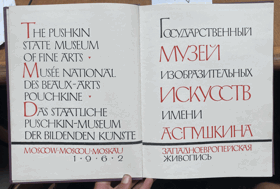 THE PUSHKIN
STATE MUSEUM
OF FINE ARTS •
MUSÉE NATIONAL
DES BEAUX-ARTS
POUCHKINE •
DAS STAATLICHE
PUSCHKIN-MUSEUM
DER BILDENDEN KÜNSTE
MOSCOW·MOSCOU·MOSKAU
1·9·6·2
ГОСУДАРСТВЕННЫЙ
МУЗЕЙ
ИЗОБРАЗИТЕЛЬНЫХ
ИСКУССТВ
ИМЕНИ
А·С·ПУШКИНА
ЗАПАДНОЕВРОПЕЙСКАЯ
ЖИВОПИСЬ